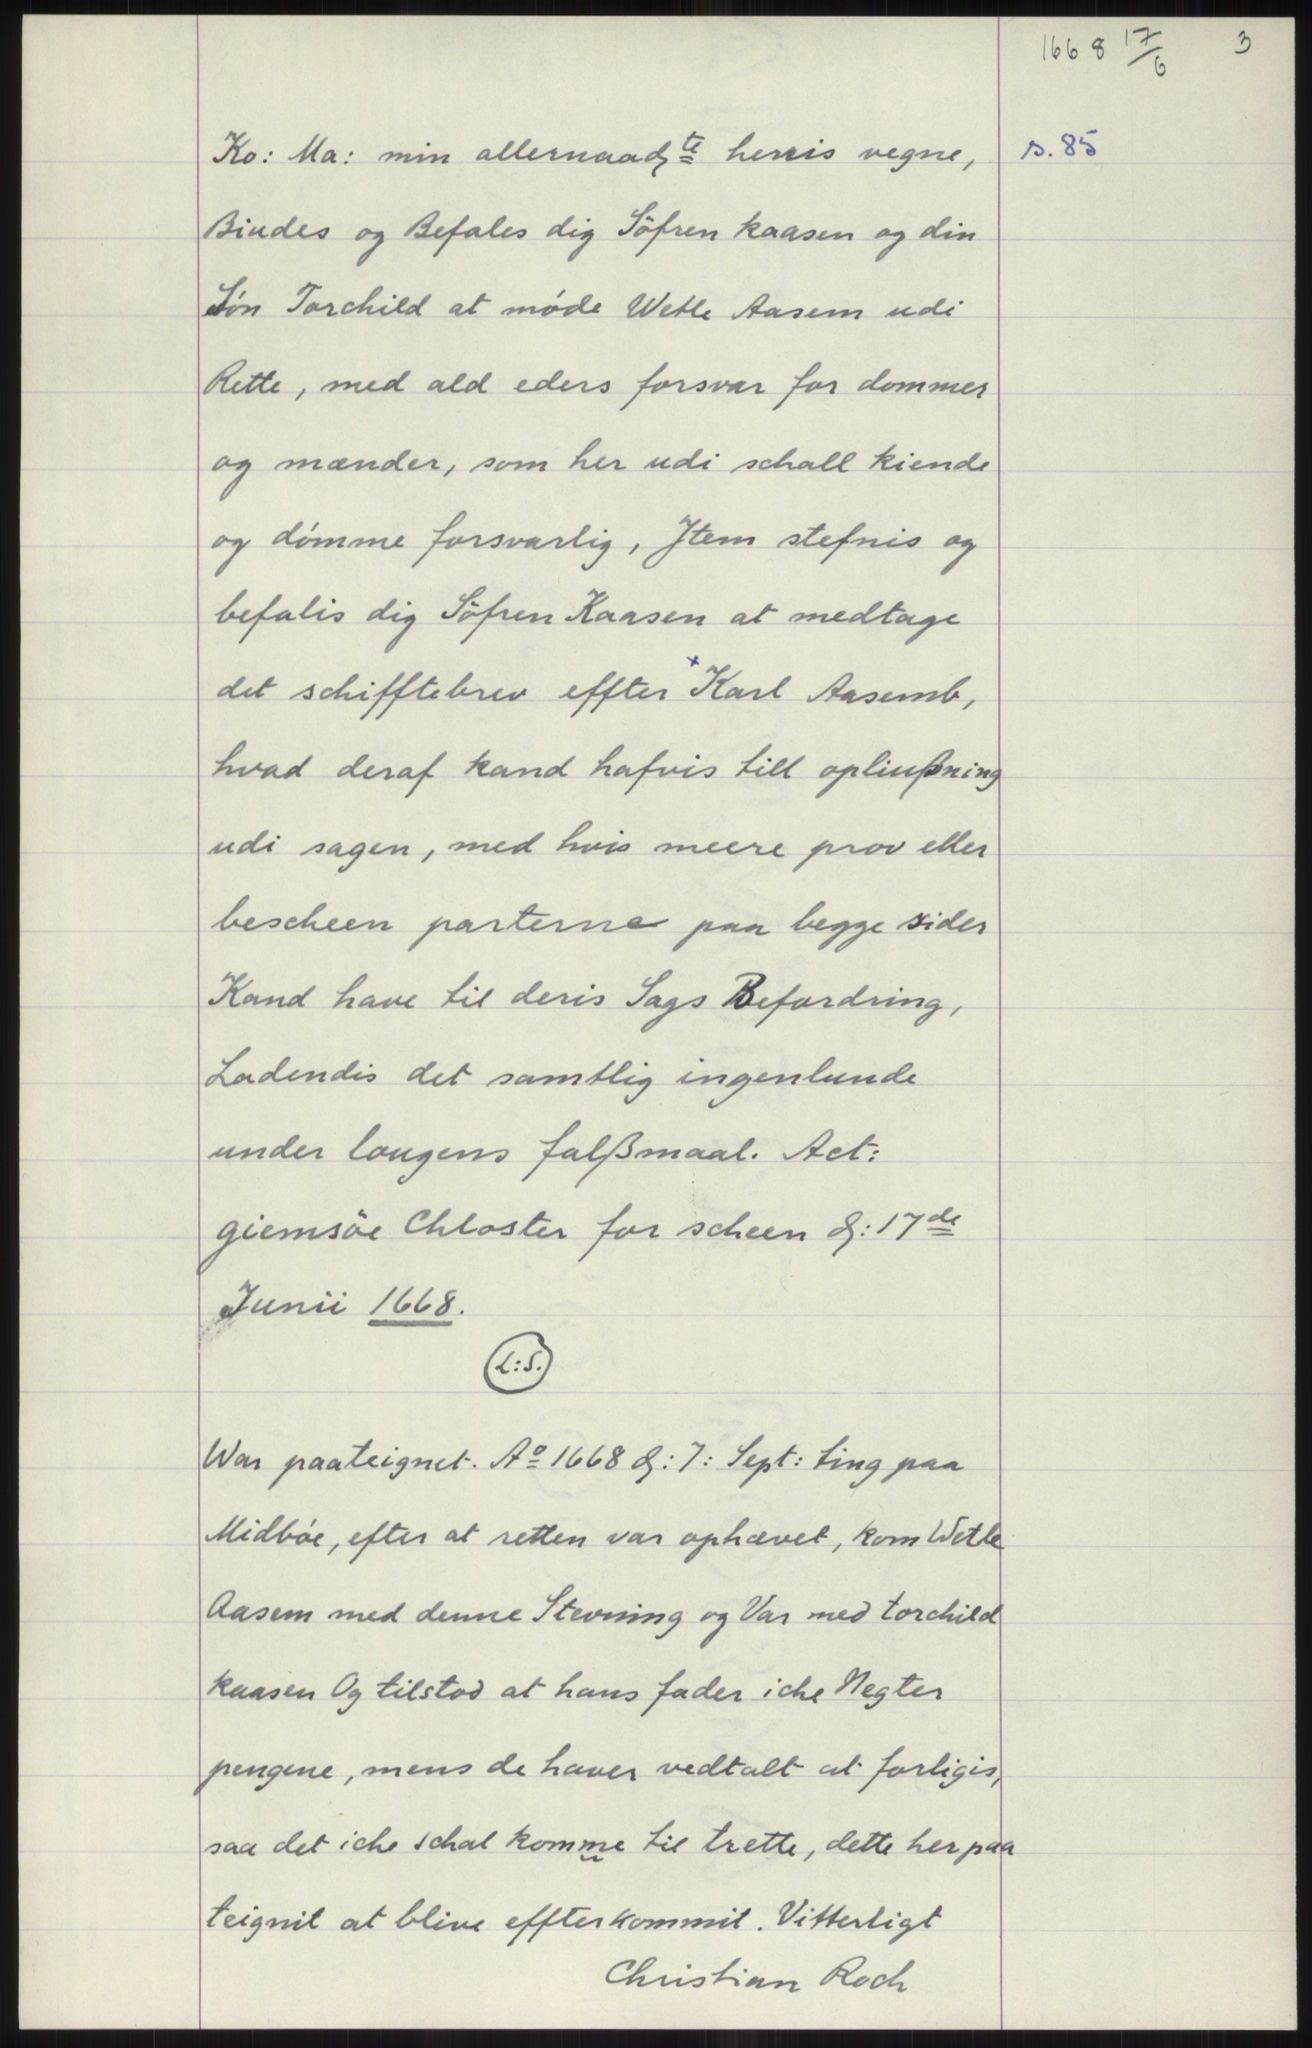 1668 17/6 3
Ko: Ma: min allernaadte herris vegne, s. 85
Biudes og Befales dig Söfren kaasen og din
Sön Torchild at möde Wetle Aasem udi
Rette, med ald eders forsvar for dommer
og mænder, som her udi schall kiende
og dömme forsvarlig, Jtem stefnis og
befalis dig Söfren Kaasen at medtage
det schifftebrev effter x Karl Aasemb,
hvad deraf kand hafvis till opliußning
udi sagen, med hvis meere prov eller
bescheen parterne paa begge sider
Kand have til deris Sags Befordring,
Ladendis det samtlig ingenlunde
under lougens falßmaal. Act:
giemsöe Chloster for scheen d: 17de
Junii 1668.
L:S.
War paateignet. Ao 1668 d: 7: Sept: ting paa
Midböe, efter at retten var ophævet, kom Wetle
Aasem med denne Stevning og Var med torchild
kaasen Og tilstod at hans fader iche Negter
pengene, mens de haver vedtalt at forligis,
saa det iche schal komme til trette, dette her paa
teignit at blive effterkommit. Vitterligt
Christian Roch